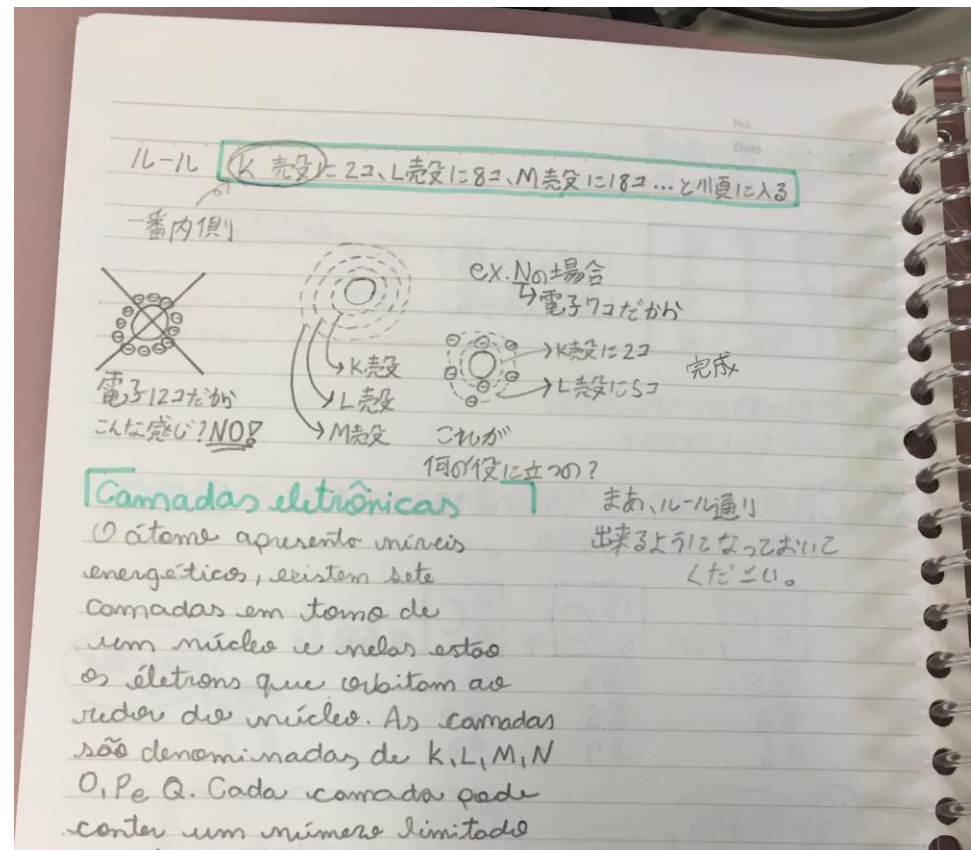 No.
Date
ルール K殻に2コ、L殻に8コ、M殻に18コ…と順に入る
一番内側
ex. Nの場合
↳電子7コだから
→K殻に2コ
→L殻に5コ
完成
→K殻
→L殻
→M殻
電子12コだから
こんな感じ?NO!
これが
何の役に立つの?
まあ、ルール通り
出来るようになっておいて
ください。
Camadas eletrônicas
O átomo apresenta níveis
energéticos, existem sete
camadas em torno de
um núcleo e nelas estão
os életrons que orbitam ao
redor do núcleo. As camadas
são denominadas de K, L, M, N
O, P e Q. Cada camada pode
conter um número limitado